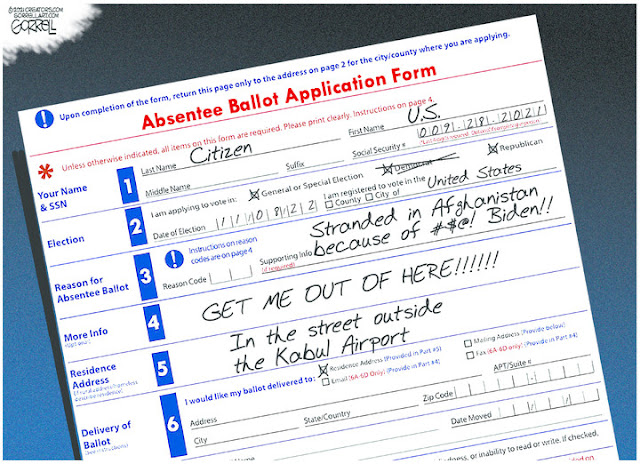 ©2021 CREATORS.COM
GORRELLART.COM
GORRELL
Upon completion of the form, return this page only to the address on page 2 for the city/county where you are applying.
Absentee Ballot Application Form
Unless otherwise indicated, all items on this form are required. Please print clearly. Instructions on page 4.
Your Name & SSN
1
Last Name Citizen
First Name U.S.
Middle Name
Suffix
Social Security # 009-28-2021
Election
2
I am applying to vote in: X General or Special Election X Democrat X Republican
Date of Election 11/08/22
I am registered to vote in the County City of United States
Reason for Absentee Ballot
3
Instructions on reason codes are on page 4
Reason Code
Supporting Info
(if required)
Stranded in Afghanistan
because of #$@! Biden!!
More Info
4
GET ME OUT OF HERE!!!!!!
Residence Address
5
In the street outside
the Kabul Airport
Delivery of Ballot
6
I would like my ballot delivered to: X Residence Address (Provided in Part #5)
Mailing Address (Provide below)
Email (6A-6D Only) (Provide in Part #4)
Fax (6A-6D Only) (Provide in Part #4)
Address
APT/Suite #
City
State/Country
Zip Code
Date Moved
or inability to read or write, if checked,